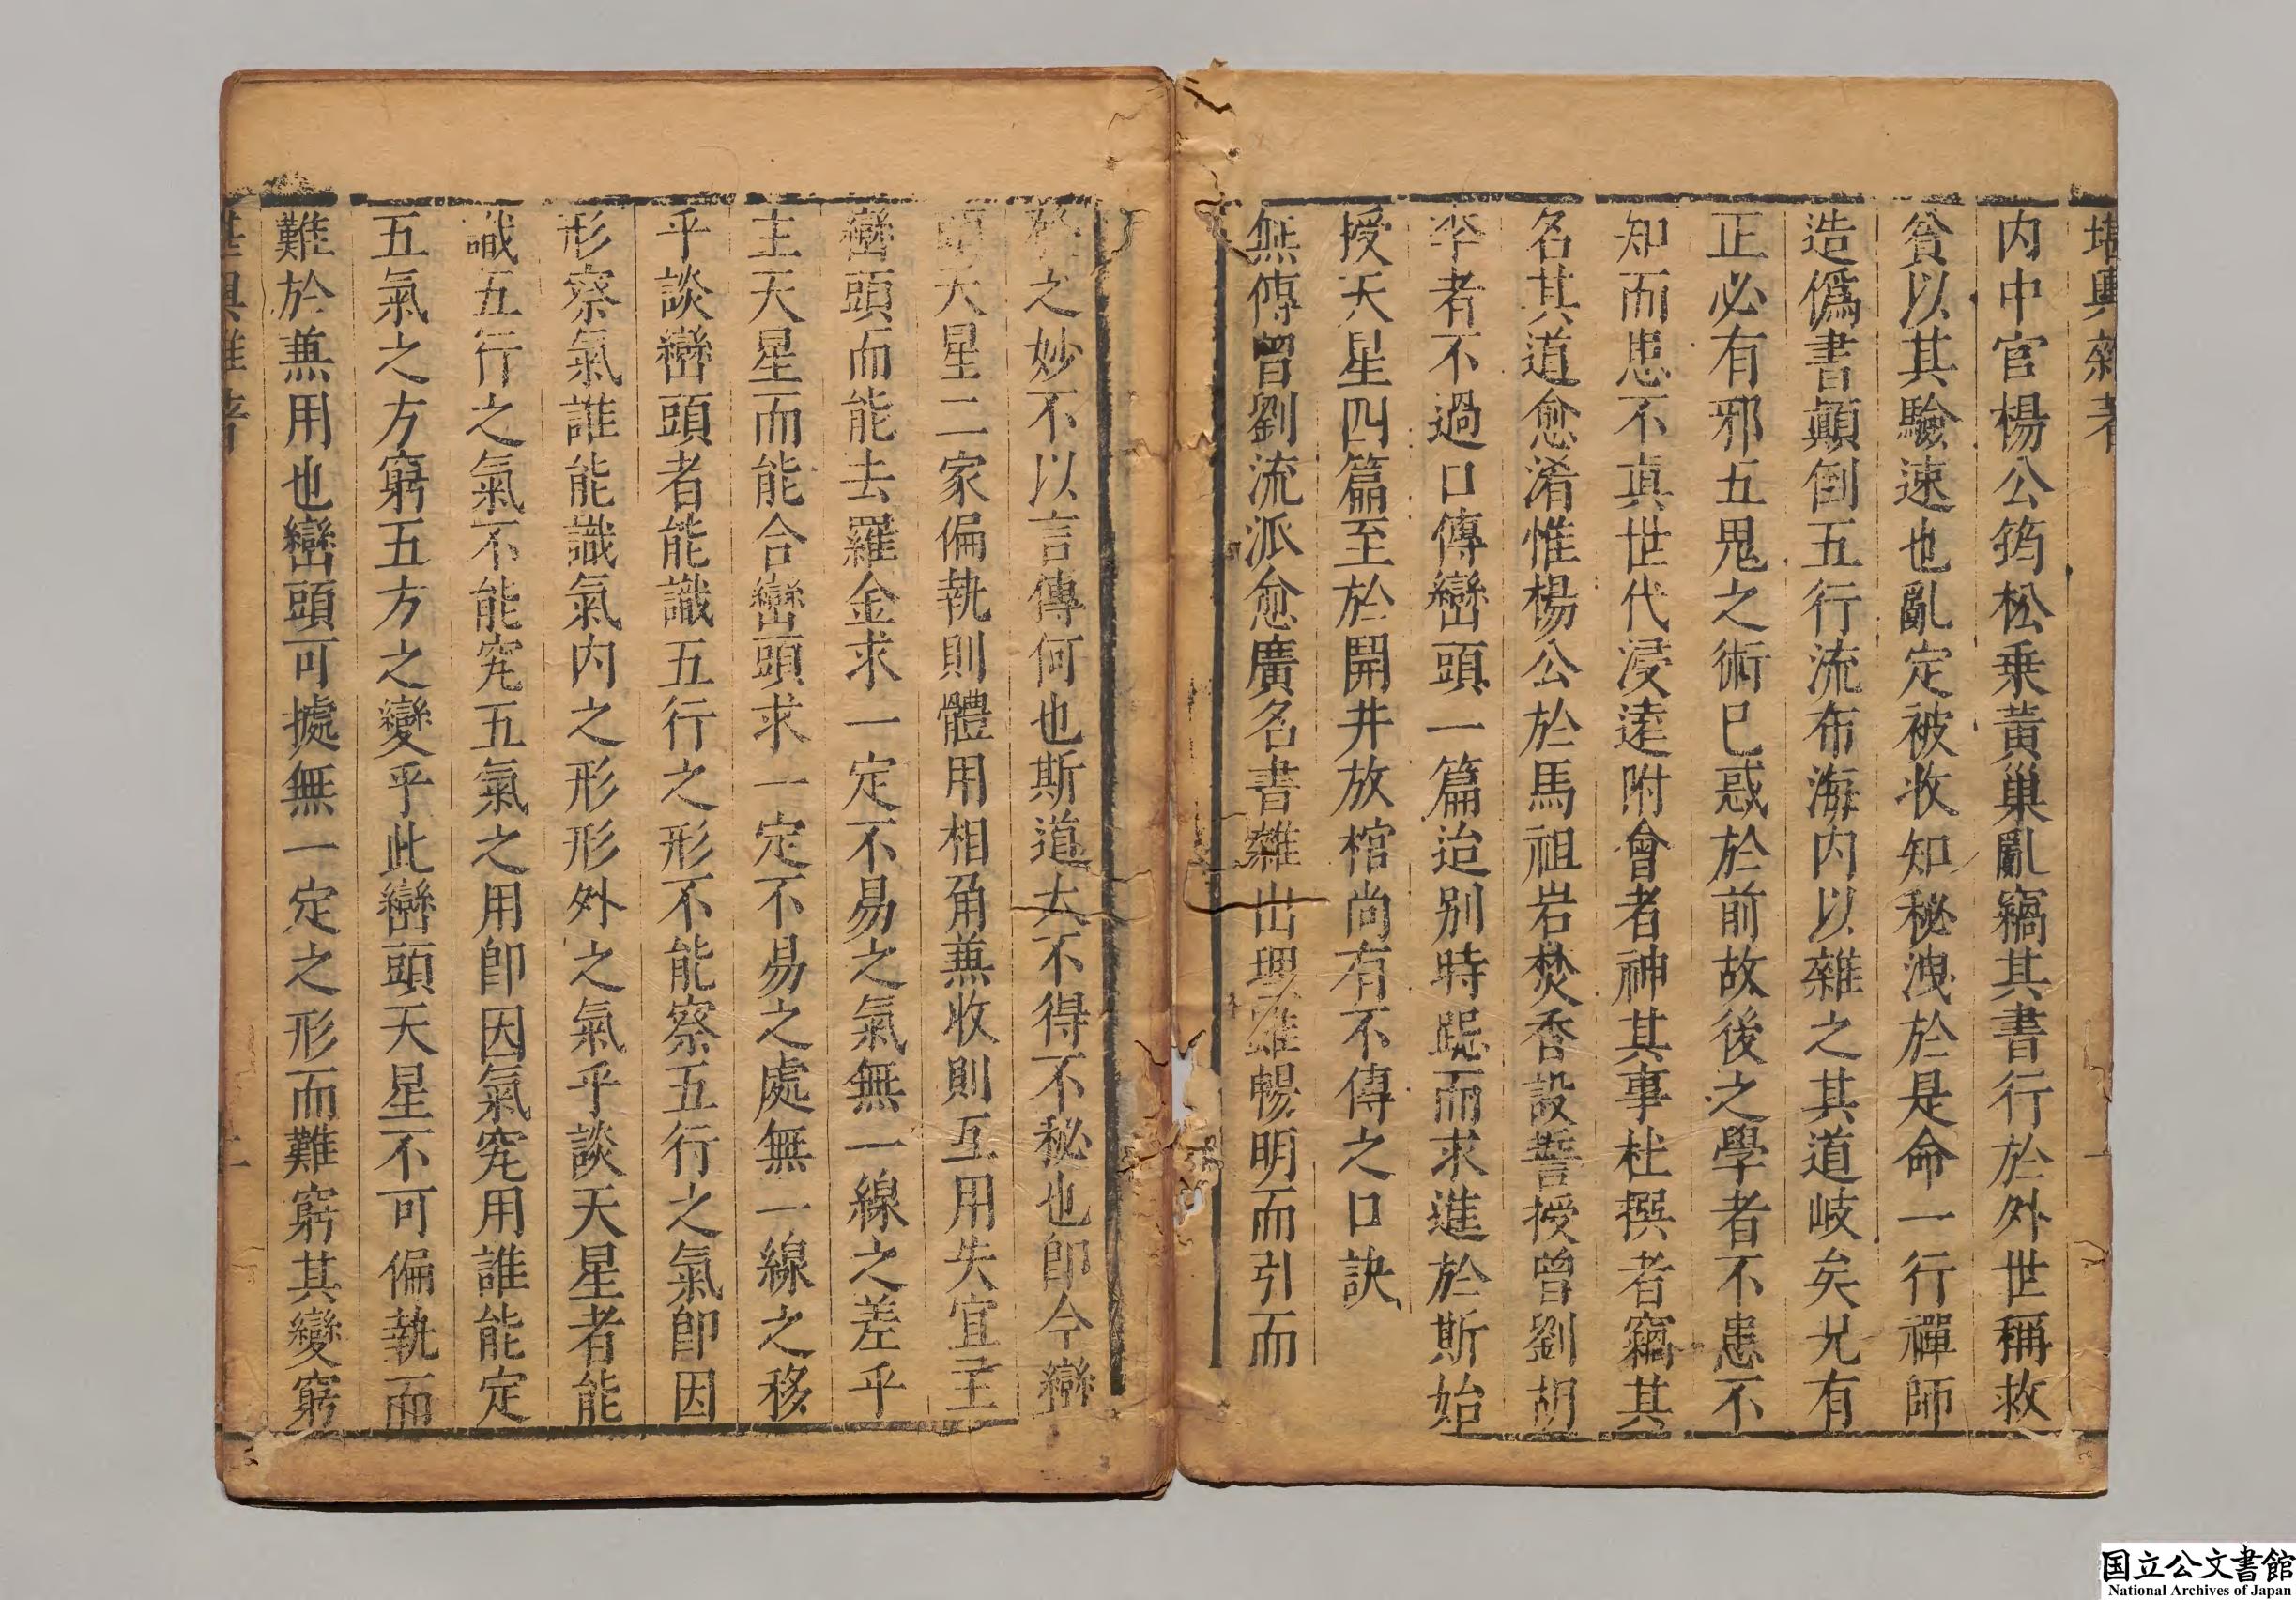 堪輿雜著
内中官楊公筠松乗黃巢亂竊其書行於外世稱救
貧以其驗速也亂定被收知秘洩於是命一行禪師
造僞書顚倒五行流布海内以雜之其道岐矣尤有
正必有邪五鬼之術巳惑於前故後之學者不患不
知而患不真世代浸遠附會者神其事杜撰者竊其
名其道愈淆惟楊公於馬祖岩焚香設誓授曾劉胡
卒者不過口傳巒頭一篇迨别時跽而求進於斯始
授天星四篇至於開井放棺尚有不傳之口訣
無傳曾劉流派愈廣名書雜出理雖暢明而引而
之妙不以言傳何也斯道大不得不秘也卽今巒
頭天星二家偏執則體用相角兼收則互用失宜主
巒頭而能去羅金求一定不易之氣無一線之差乎
主天星而能合巒頭求一定不易之處無一線之移
乎談巒頭者能識五行之形不能察五行之氣卽因
形察氣誰能識氣内之形形外之氣乎談天星者能
識五行之氣不能究五氣之用卽因氣究用誰能定
五氣之方窮五方之變乎此巒頭天星不可偏執而
難於兼用也巒頭可據無一定之形而難窮其變窮
堪輿雜著
上
国立公文書館
National Archives of Japan